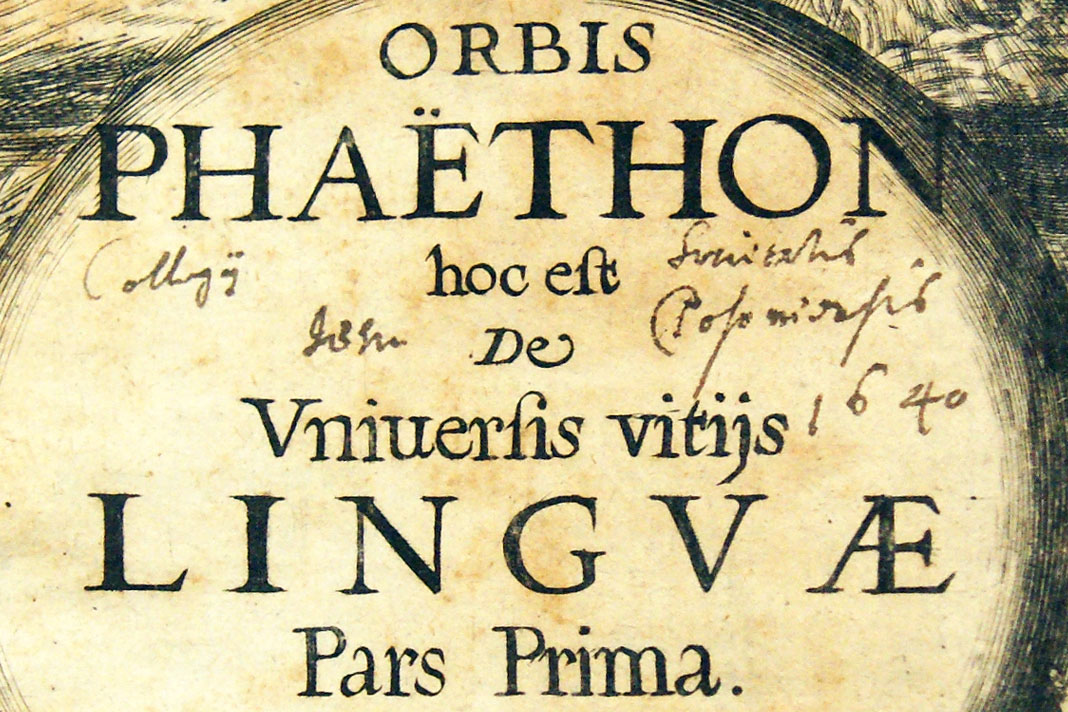 ORBIS
PHAËTHON
Collegij hoc eſt Societatis
Jesu De Posoniensis
1640
Vniuerſis vitijs
LINGVÆ
Pars Prima.